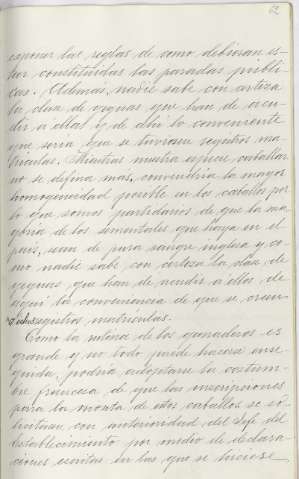 62
exponer las reglas de como debieran es-
tar constituidas las paradas públi-
cas. Además, nadie sabe con certeza
la clase de yeguas que han de acu-
dir á ellas y de ahí lo conveniente
que sería que se llevasen registros ma-
trículas. Mientras nuestra especie caballar
no se defina mas, convendría la mayor
homogeneidad posible en los caballos por
lo que somos partidarios de que la ma-
yoría de los sementales que haya en el
país, sean de pura sangre inglesa y co-
mo nadie sabe con certeza la clase de
yeguas que han de acudir á ellos, de
aquí la conveniencia de que se crean
registros matrículas.
Como la rutina de los ganaderos es
grande y no todo puede hacerse ense-
guida, podría adoptarse la costum-
bre francesa de que las inscripciones
para la monta de estos caballos se so-
liciten con anterioridad del Jefe del
establecimiento por medio de declara-
ciones escritas en las que se hiciese